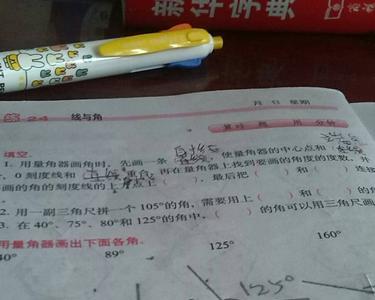 新华字典
24 线与角
月 日 星期
用 分钟
填空。
1. 用量角器画角时，先画一条 使量角器的中心点和
0 刻度线和 重合 再在量角器上找到要画的角度的度数，并
画的角的刻度线的上 点上（ ），最后把（ ）和（ ）连接
2. 用一副三角尺拼一个105°的角，需要用上（ ）的角和（ ）的
3. 在 40°、75°、80°和125°的角中，（ ）的角可以用三角尺画
用量角器画出下面各角。
40° 89° 125° 160°
125°